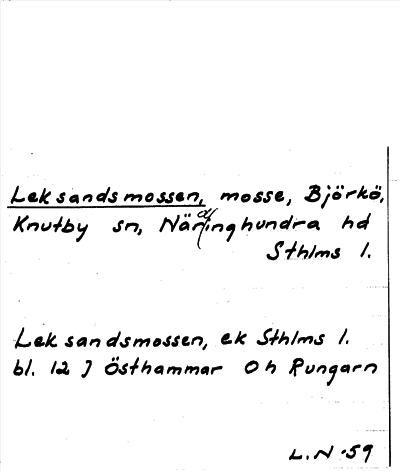 Leksandsmossen, mosse, Björkö,
Knutby sn, Närdinghundra hd
Sthlms l.
Leksandsmossen, ek Sthlms l.
bl. 12 J Östhammar Oh Rungarn
L.N -59